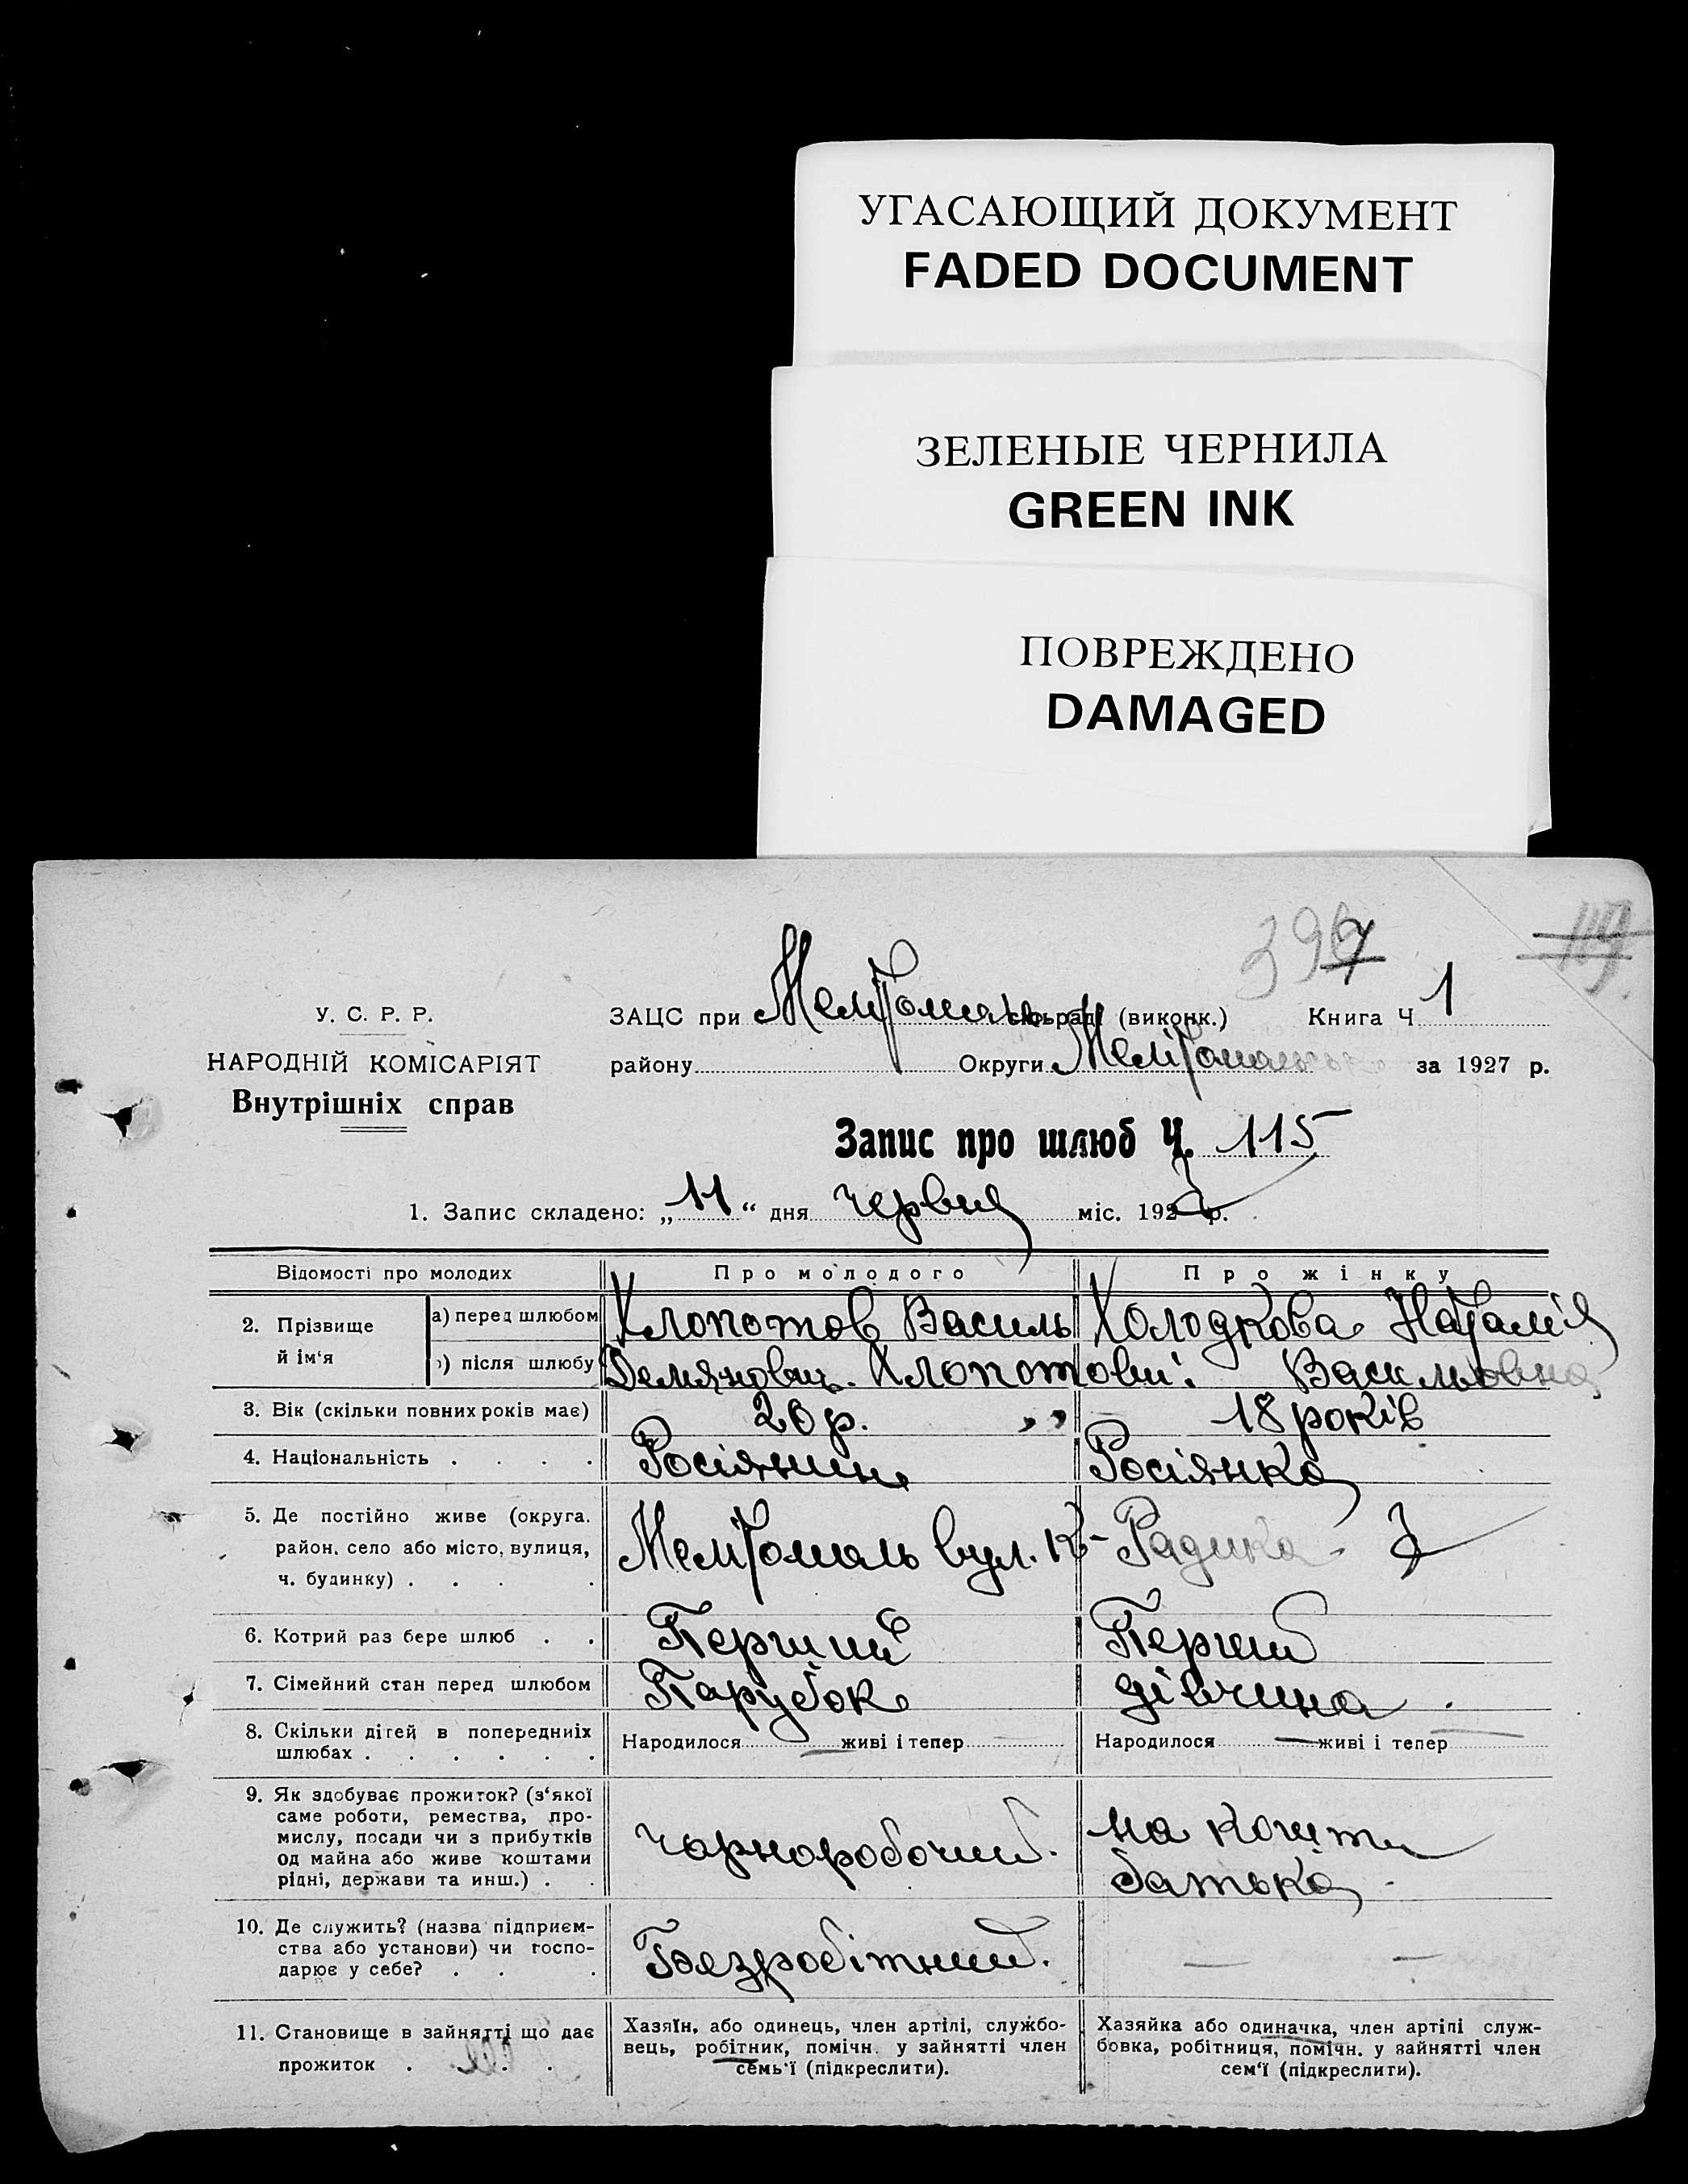 УГАСАЮЩИЙ ДОКУМЕНТ
FADED DOCUMENT
ЗЕЛЕНЫЕ ЧЕРНИЛА
GREEN INK
ПОВРЕЖДЕНО
DAMAGED
У. С. Р. Р.
НАРОДНІЙ КОМІСАРІЯТ
Внутрішніх справ
ЗАЦС при (виконк.) Книга Ч 1
району Округи за 1927 р.
Запис про шлюб Ч. 115
1. Запис складено: „11“ дня червня міс. 192 р.
Відомості про молодих Про молодого Про жінку
2. Прізвище й ім‘я
а) перед шлюбом Хлопотов Василь Холодкова Наталія
) після шлюбу Демянович. Хлопотови: Васильовна
3. Вік (скільки повних років має) 20 р. „ 18 років
4. Національність . . . . Росіянин Росіянка
5. Де постійно живе (округа.
район, село або місто, вулиця,
ч. будинку) . . . .
Мелітополь вул. К-
6. Котрий раз бере шлюб . . Перший Перший
7. Сімейний стан перед шлюбом Парубок дівчина .
8. Скільки дітей в попередниіх
шлюбах . . . . . .
Народилося — живі і тепер Народилося — живі і тепер —
9. Як здобуває прожиток? (з‘якої
саме роботи, ремества, про-
мислу, посади чи з прибутків
од майна або живе коштами
рідні, держави та инш.) . .
чорноробочий. на кошти
батька
10. Де служить? (назва підприєм-
ства або установи) чи госпо-
дарює у себе? . . .
Безробітний. — —
11. Становище в зайнятті що дає
прожиток . . .
Хазяїн, або одинець, член артілі, службо-
вець, робітник, помічн. у зайнятті член
семь‘ї (підкреслити).
Хазяйка або одиначка, член артілі служ-
бовка, робітниця, помічн. у зайнятті член
сем‘ї (підкреслити).